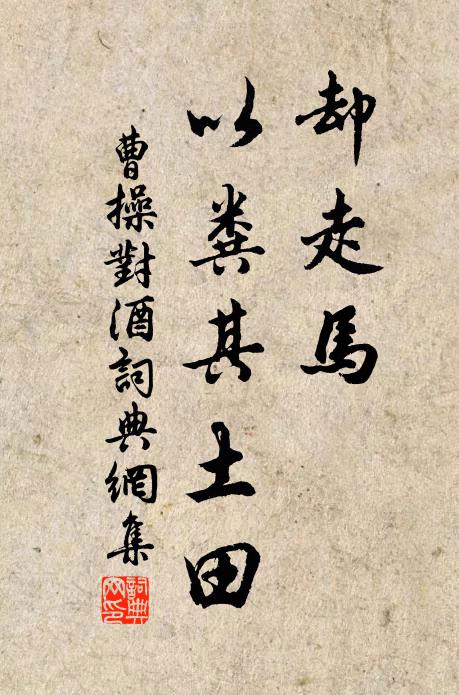 却走馬
以糞其土田
曹操對酒詞典網集
詞典
文印